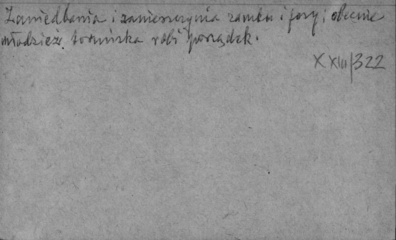 Zaniedbania i zanieczyszczenia zamku i fosy; obecnie
młodzież toruńska robi porządek.
XXIII/322